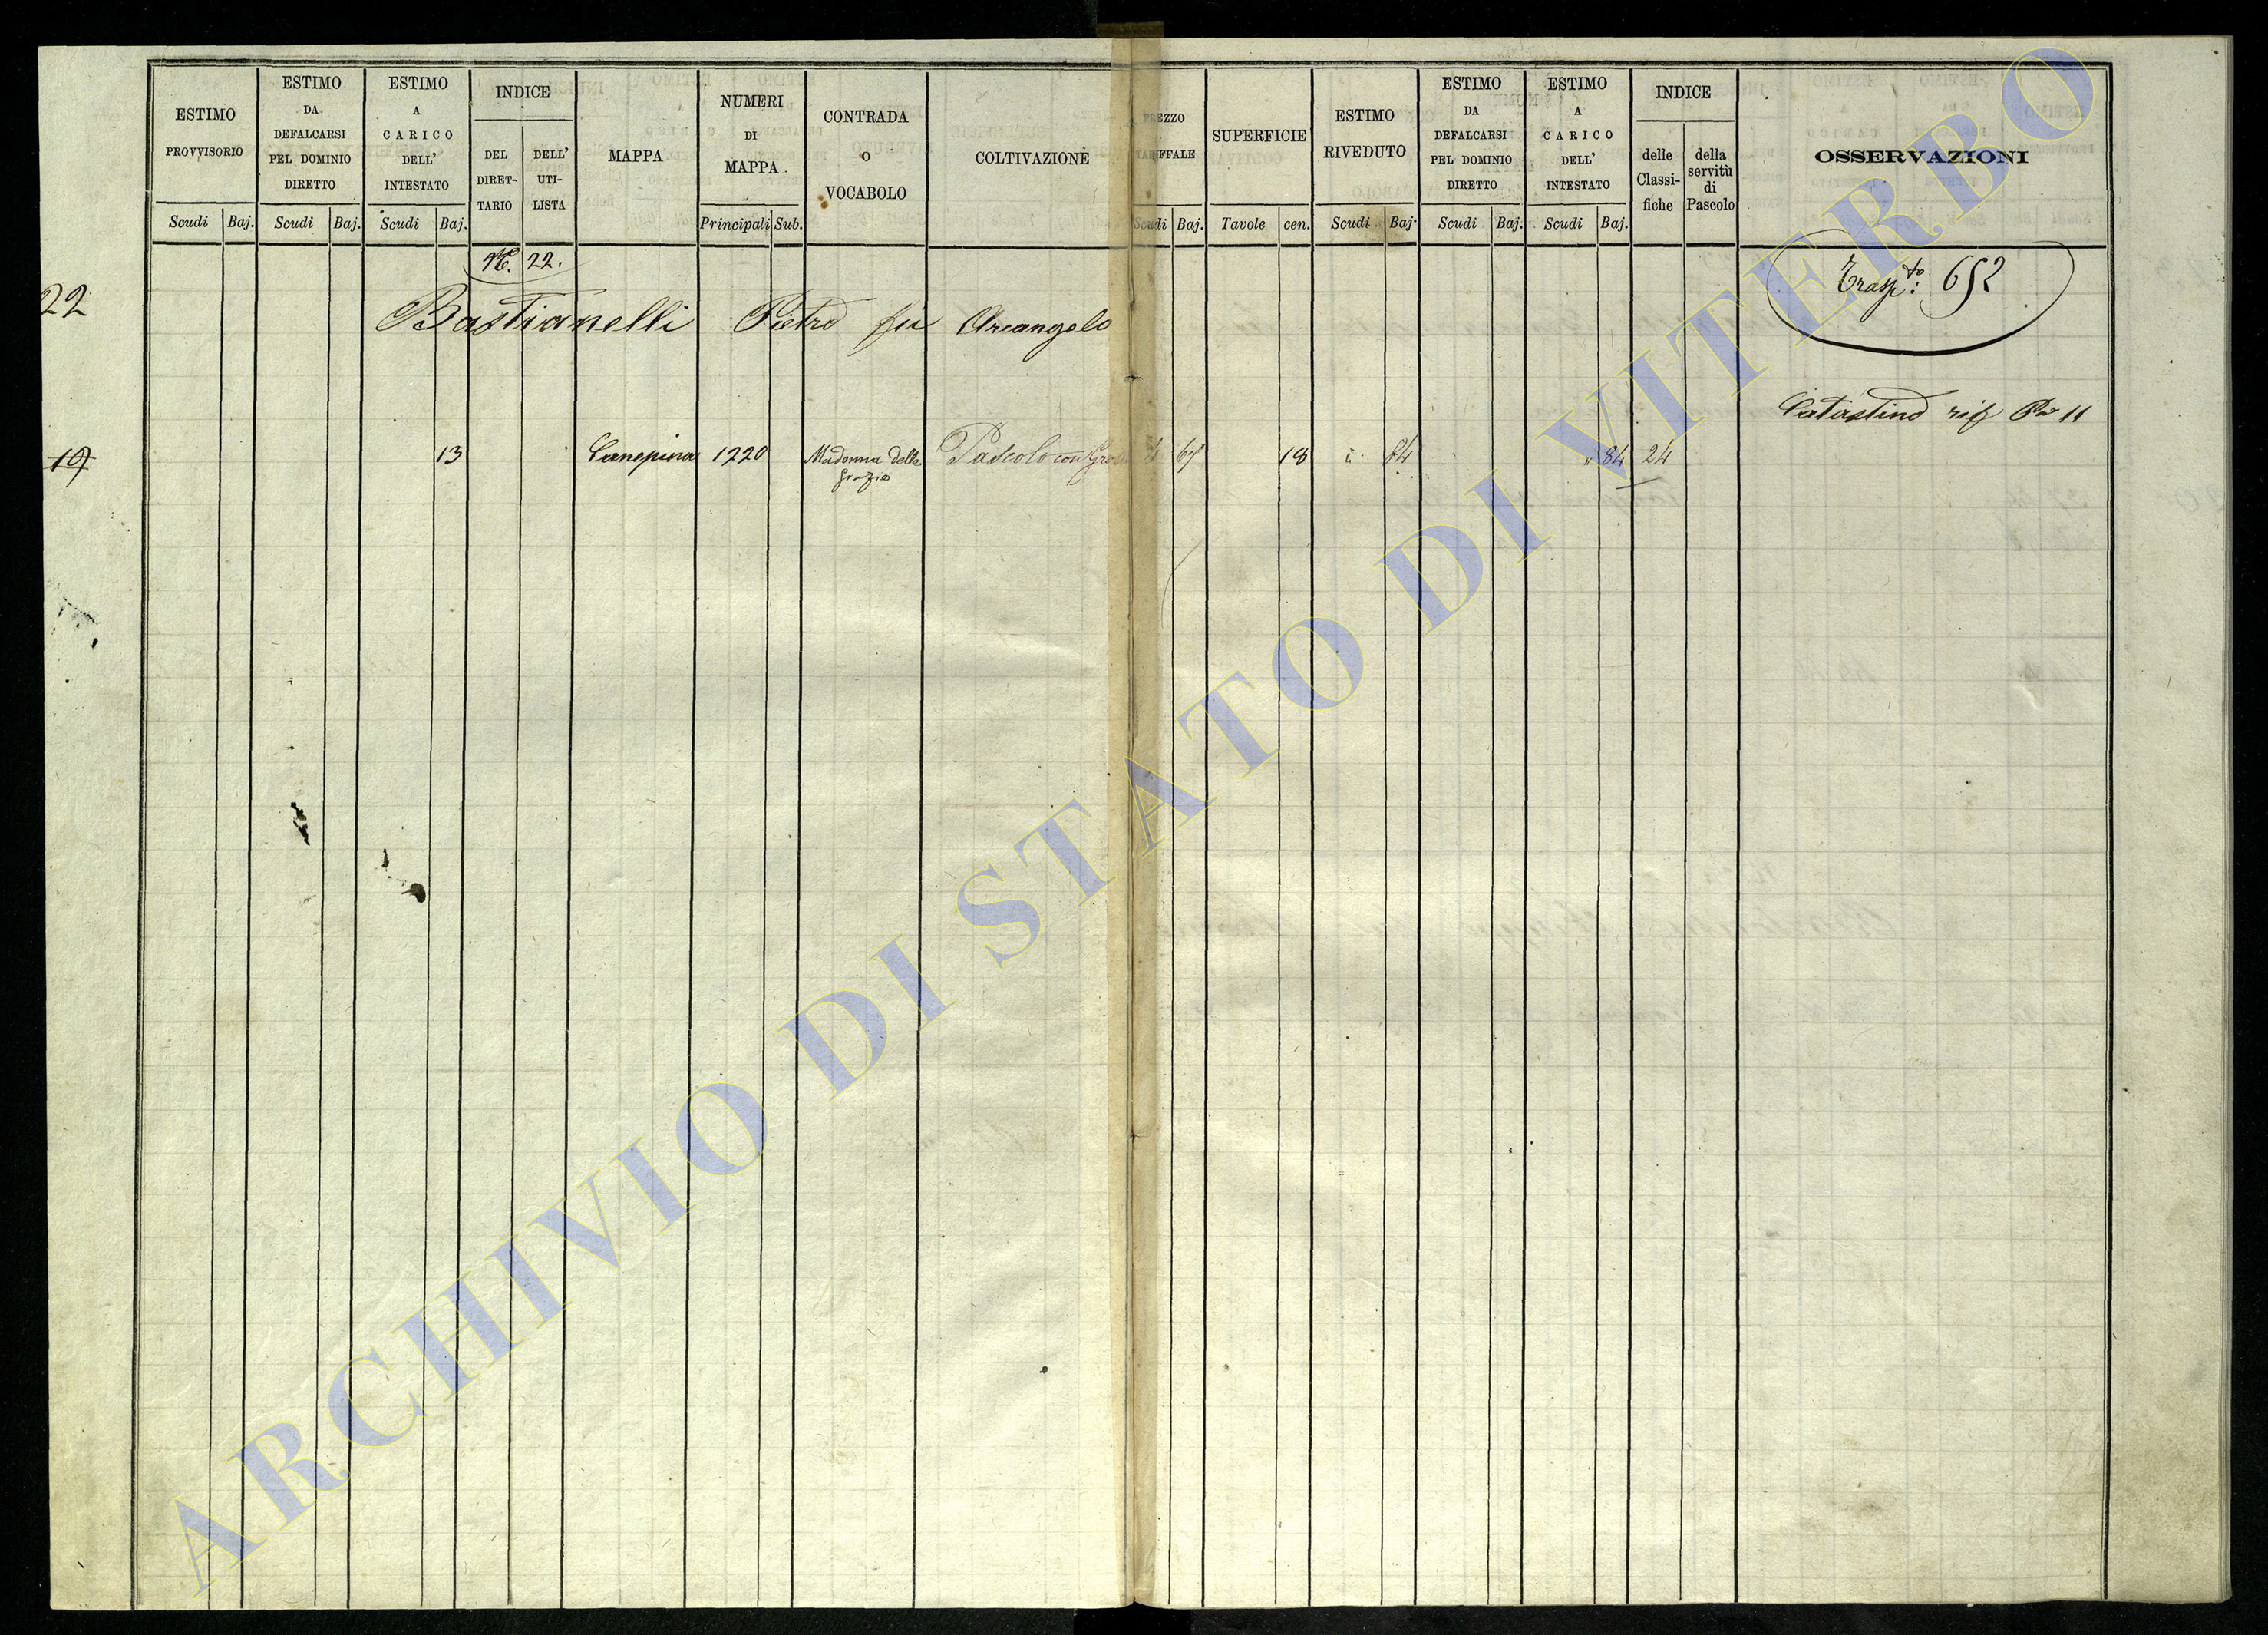 ESTIMO PROVVISORIO
Scudi Baj.
ESTIMO DA DEFALCARSI PEL DOMINIO DIRETTO
Scudi Baj.
ESTIMO A CARICO DELL' INTESTATO
Scudi Baj.
INDICE
DEL DIRET-TARIO
DELL' UTI-LISTA
MAPPA
NUMERI DI MAPPA
Principali Sub.
CONTRADA O VOCABOLO
COLTIVAZIONE
Scudi Baj.
SUPERFICIE
Tavole cen.
ESTIMO RIVEDUTO
Scudi Baj.
ESTIMO DA DEFALCARSI PEL DOMINIO DIRETTO
Scudi Baj.
ESTIMO A CARICO DELL' INTESTATO
Scudi Baj.
INDICE
delle Classi-fiche
della servitù di Pascolo
OSSERVAZIONI
22.
22
Bastianelli Pietro fu Arcangelo
Trasp.to: 652
Catastino rif 11
19
13 Canepina 1220 Madonna delle Pascolo con
Grazie
18 84 24
ARCHIVIO DI STATO DI VITERBO